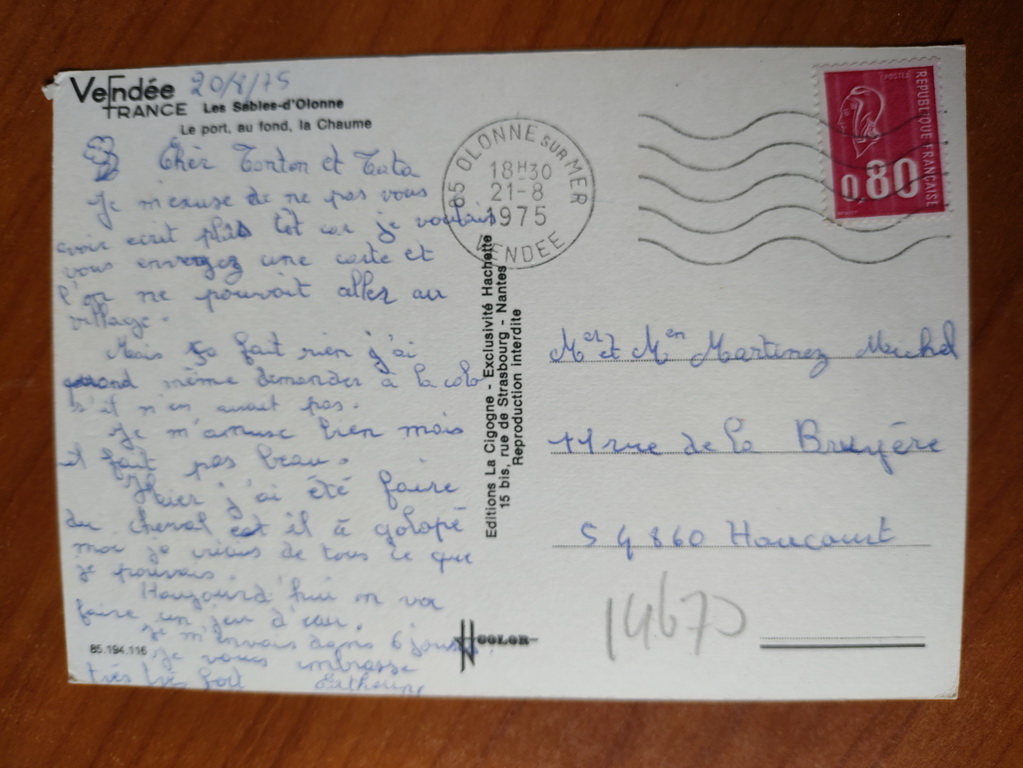 Vendée 20/8/75
FRANCE Les Sables-d'Olonne
Le port, au fond, la Chaume
Chèr Tonton et Tata
Je m'exuse de ne pas vous
avoir ecrit plus tot car je voulais
vous envoyez une carte et
l'on ne pouvait aller au
village.
Mais ço fait rien j'ai
quand même demander à la colo
s'il n'en avait pas.
Je m'amuse bien mais
il fait pas beau.
Hier j'ai été faire
du cheval est il à golopé
moi je de tous ce que
je pouvais.
Haujourd'hui on va
faire un jeu d'eau.
Je m'envais dans 6 jours
Je vous imbrasse
très très fort
85.194.116
Editions La Cigogne - Exclusivité Hachette
15 bis, rue de Strasbourg - Nantes
Reproduction interdite
COLOR
85 OLONNE SUR MER
18H30
21-8
1975
VENDEE
POSTES
REPUBLIQUE FRANÇAISE
0,80
Mer et Men Martinez Michel
11 rue de la Bruyére
54860 Haucourt
1467